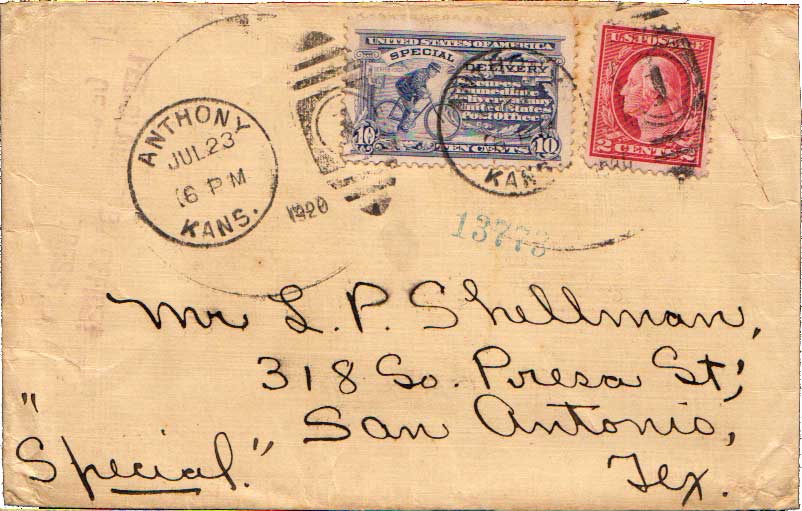 UNITED STATES OF AMERICA
SPECIAL
DELIVERY
immediate
United States
Post Office
10 TEN CENTS 10
U.S. POSTAGE
2 CENTS 2
ANTHONY
JUL 23
6 PM
KANS.
1920
KANS
13773
Mr L. P. Shellman,
318 So. Presa St,
San Antonio,
Tex.
"Special."